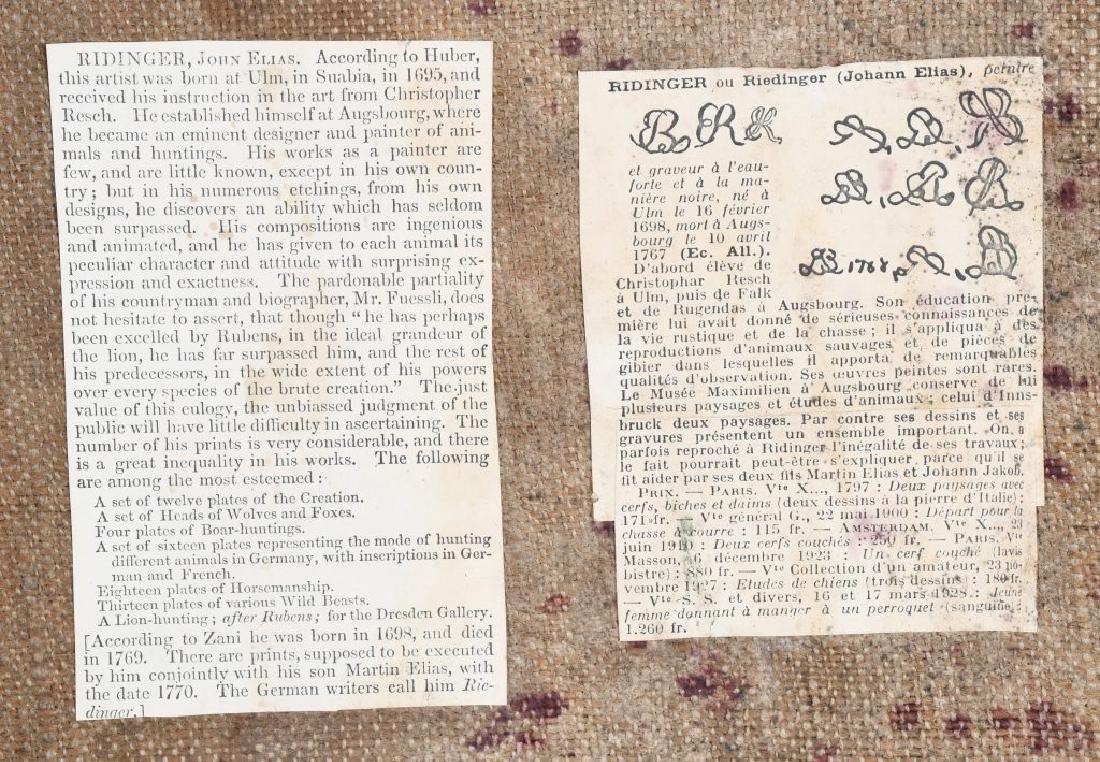 RIDINGER, JOHN ELIAS. According to Huber,
this artist was born at Ulm, in Suabia, in 1695, and
received his instruction in the art from Christopher
Resch. He established himself at Augsbourg, where
he became an eminent designer and painter of ani-
mals and huntings. His works as a painter are
few, and are little known, except in his own coun-
try; but in his numerous etchings, from his own
designs, he discovers an ability which has seldom
been surpassed. His compositions are ingenious
and animated, and he has given to each animal its
peculiar character and attitude with surprising ex-
pression and exactness. The pardonable partiality
of his countryman and biographer, Mr. Fuessli, does
not hesitate to assert, that though "he has perhaps
been excelled by Rubens, in the ideal grandeur of
the lion, he has far surpassed him, and the rest of
his predecessors, in the wide extent of his powers
over every species of the brute creation." The just
value of this eulogy, the unbiassed judgment of the
public will have little difficulty in ascertaining. The
number of his prints is very considerable, and there
is a great inequality in his works. The following
are among the most esteemed:
A set of twelve plates of the Creation.
A set of Heads of Wolves and Foxes.
Four plates of Boar-huntings.
A set of sixteen plates representing the mode of hunting
different animals in Germany, with inscriptions in Ger-
man and French.
Eighteen plates of Horsemanship.
Thirteen plates of various Wild Beasts.
A Lion-hunting; after Rubens; for the Dresden Gallery.
[According to Zani he was born in 1698, and died
in 1769. There are prints, supposed to be executed
by him conjointly with his son Martin Elias, with
the date 1770. The German writers call him Rie-
dinger.]
RIDINGER ou Riedinger (Johann Elias), peintre
et graveur à l'eau-
forte et à la ma-
nière noire, né à
Ulm le 16 février
1698, mort à Augs-
bourg le 10 avril
1767 (Ec. All.).
D'abord élève de
Christophar Resch
à Ulm, puis de Falk
1768
et de Rugendas à Augsbourg. Son éducation pre-
mière lui avait donné de sérieuses connaissances de
la vie rustique et de la chasse; il s'appliqua à des
reproductions d'animaux sauvages et de pièces de
gibier dans lesquelles il apporta de remarquables
qualités d'observation. Ses œuvres peintes sont rares.
Le Musée Maximilien à Augsbourg conserve de lui
plusieurs paysages et études d'animaux; celui d'Inns-
bruck deux paysages. Par contre ses dessins et ses
gravures présentent un ensemble important. On a
parfois reproché à Ridinger l'inégalité de ses travaux;
le fait pourrait peut-être s'expliquer, parce qu'il se
fit aider par ses deux fils Martin Elias et Johann Jakob.
PRIX. — PARIS. Vte X..., 1797 : Deux paysages avec
cerfs, biches et daims (deux dessins à la pierre d'Italie):
171 fr. — Vte général G., 22 mai 1900 : Départ pour la
chasse à courre : 115 fr. — AMSTERDAM. Vte X..., 23
juin 1910 : Deux cerfs couchés : 250 fr. — PARIS. Vte
Masson, 6 décembre 1923 : Un cerf couché (lavis
bistre) : 880 fr. — Vte Collection d'un amateur, 23 no-
vembre 1927 : Etudes de chiens (trois dessins) : 180 fr.
— Vte S. S. et divers, 16 et 17 mars 1928 : Jeune
femme donnant à manger à un perroquet (sanguine) :
1.260 fr.